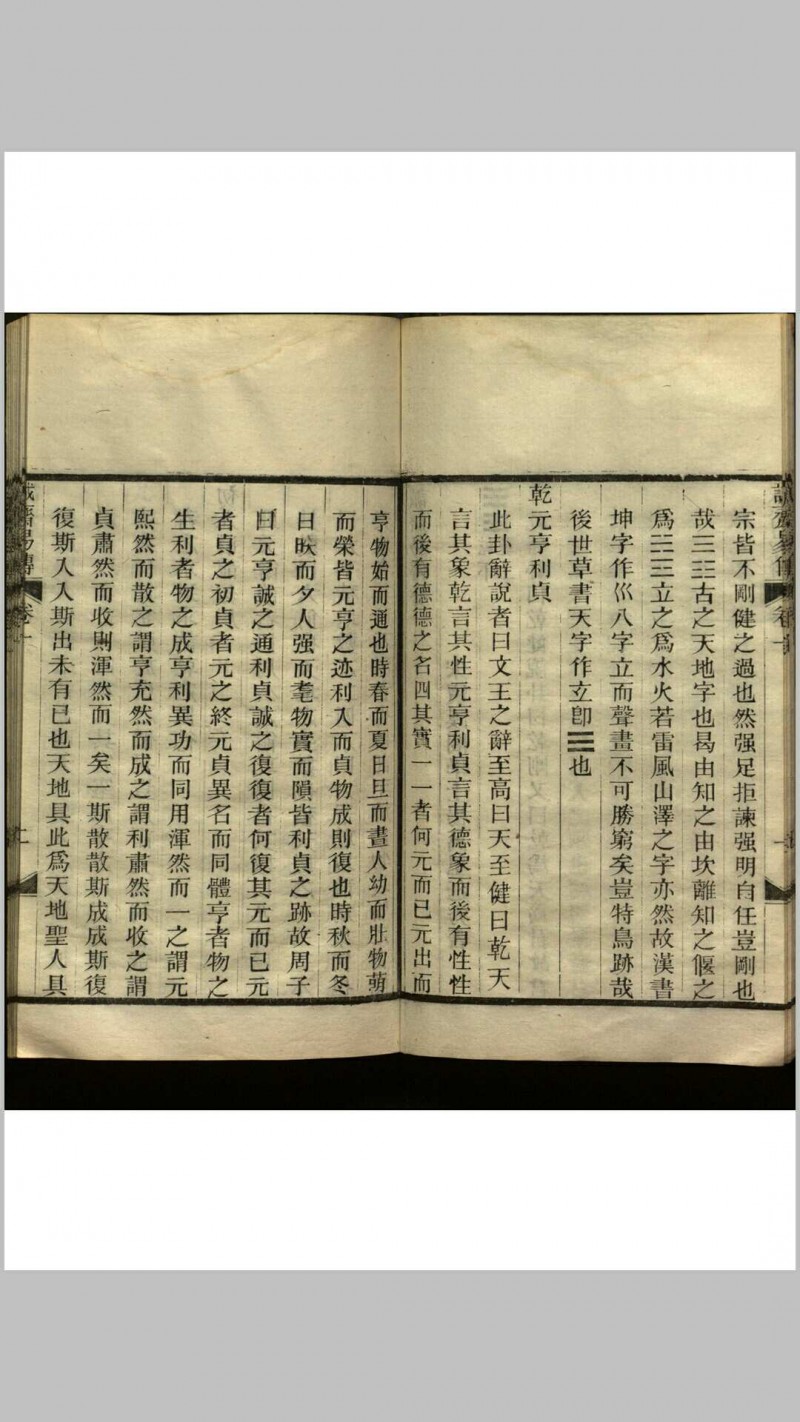 宗皆不剛健之過也然强足拒諫强明自任豈剛也
哉☰☷古之天地字也曷由知之由坎離知之偃之
爲☵☲立之爲水火若雷風山澤之字亦然故漢書
坤字作巛八字立而聲畫不可勝窮矣豈特鳥跡哉
後世草書天字作立卽☰也
乾元亨利貞
此卦辭說者曰文王之辭至高曰天至健曰乾天
言其象乾言其性元亨利貞言其德象而後有性性
而後有德德之名四其實一一者何元而已元出而
亨物始而通也時春而夏日旦而晝人幼而壯物萌
而榮皆元亨之迹利入而貞物成則復也時秋而冬
日昳而夕人强而耄物實而隕皆利貞之跡故周子
曰元亨誠之通利貞誠之復復者何復其元而已元
者貞之初貞者元之終元貞異名而同體亨者物之
生利者物之成亨利異功而同用渾然而一之謂元
熙然而散之謂亨充然而成之謂利肅然而收之謂
貞肅然而收則渾然而一矣一斯散散斯成成斯復
復斯入入斯出未有已也天地具此爲天地聖人具